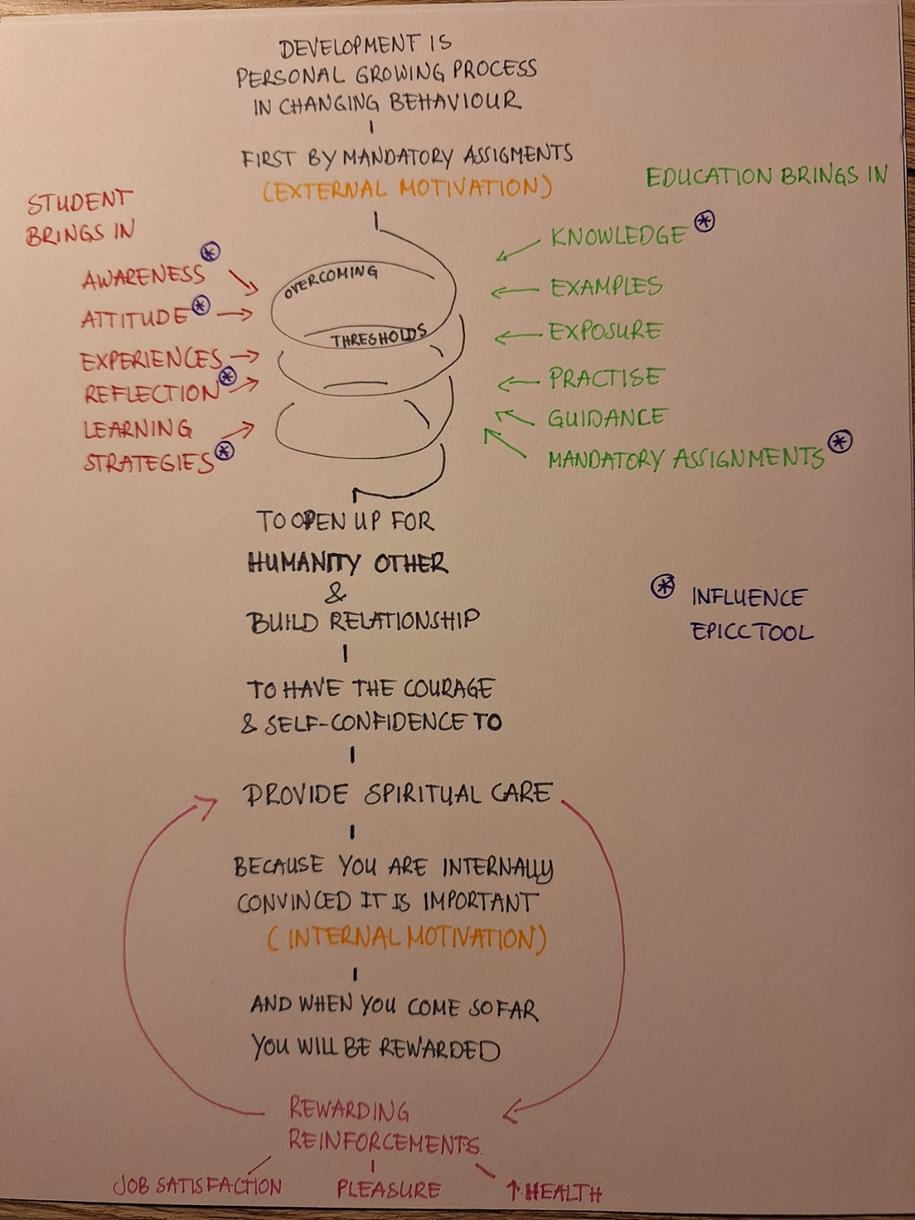 DEVELOPMENT IS
PERSONAL GROWING PROCESS
IN CHANGING BEHAVIOUR
FIRST BY MANDATORY ASSIGMENTS
(EXTERNAL MOTIVATION)
STUDENT
BRINGS IN
AWARENESS *
ATTITUDE *
EXPERIENCES
REFLECTION *
LEARNING
STRATEGIES *
OVERCOMING
THRESHOLDS
EDUCATION BRINGS IN
KNOWLEDGE *
EXAMPLES
EXPOSURE
PRACTISE
GUIDANCE
MANDATORY ASSIGNMENTS *
TO OPEN UP FOR
HUMANITY OTHER
&
BUILD RELATIONSHIP
* INFLUENCE
EPICC TOOL
TO HAVE THE COURAGE
& SELF-CONFIDENCE TO
PROVIDE SPIRITUAL CARE
BECAUSE YOU ARE INTERNALLY
CONVINCED IT IS IMPORTANT
(INTERNAL MOTIVATION)
AND WHEN YOU COME SO FAR
YOU WILL BE REWARDED
REWARDING
REINFORCEMENTS
JOB SATISFACTION
PLEASURE
↑ HEALTH